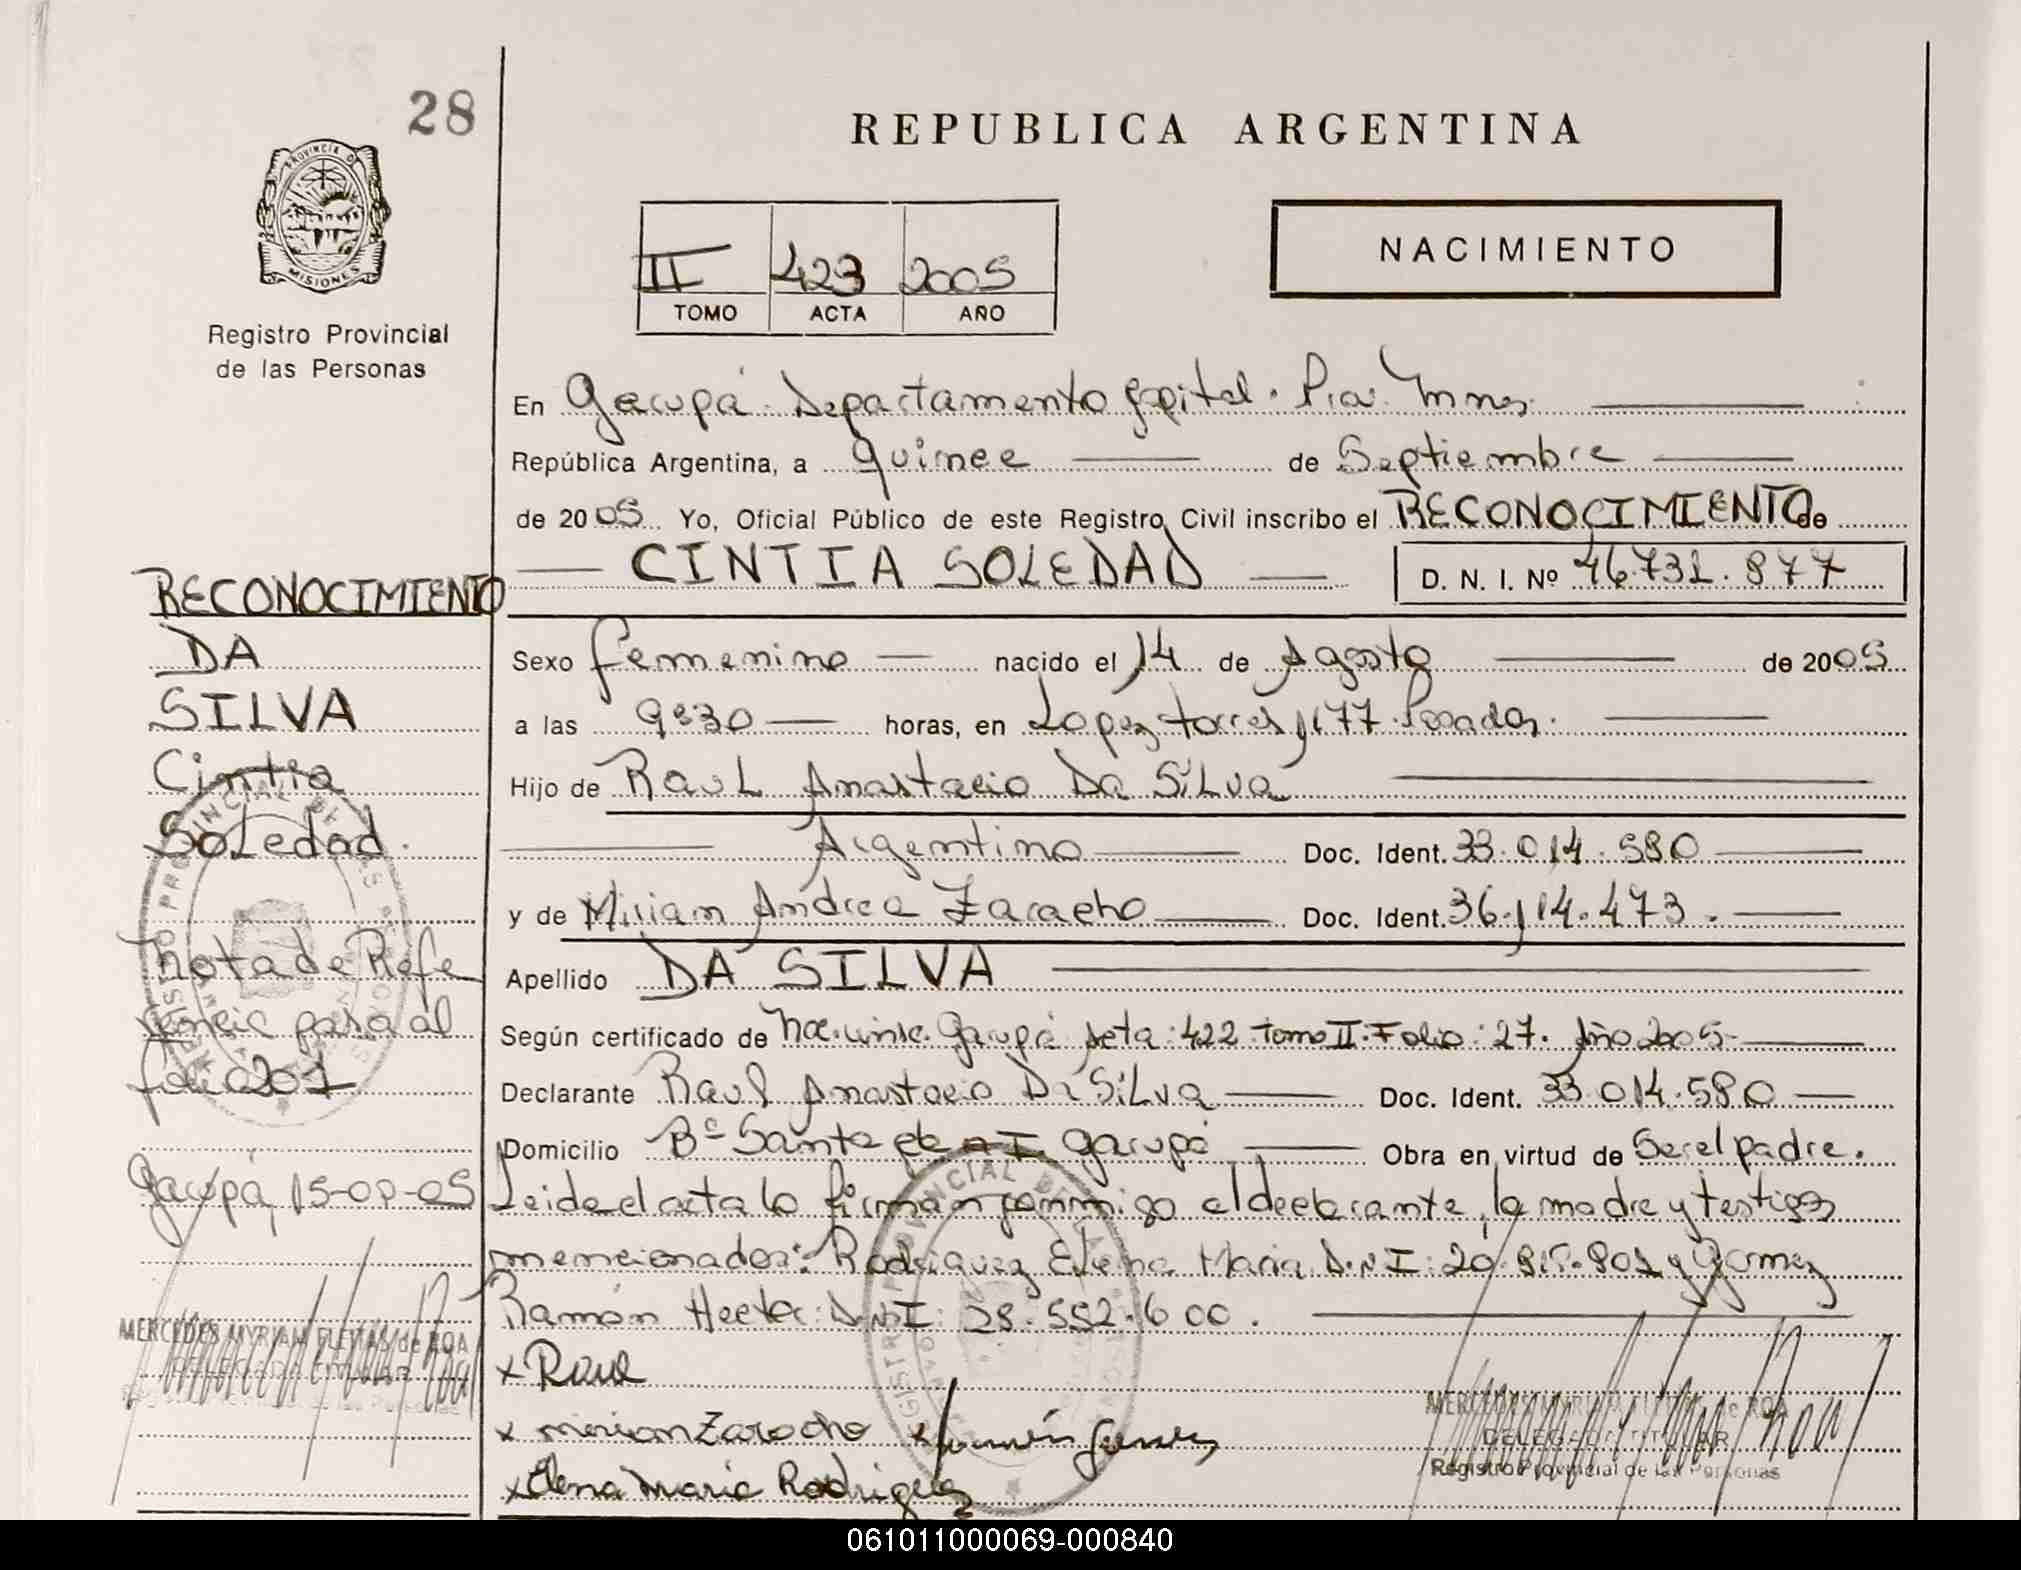 28
REPUBLICA ARGENTINA
PROVINCIA DE
MISIONES
Registro Provincial
de las Personas
II 423 2005
TOMO ACTA AÑO
NACIMIENTO
En Garupá Departamento Capital. Pcia. Mnes.
República Argentina, a Quince de Septiembre
de 2005 Yo, Oficial Público de este Registro Civil inscribo el RECONOCIMIENTO de
CINTIA SOLEDAD D. N. I. Nº 46.731.877
Sexo femenino nacido el 14 de Agosto de 2005
a las 9:30 horas, en Lopez torres 1177 Posadas.
Hijo de Raul Anastacio Da Silva
Argentino Doc. Ident. 33.014.580
y de Miriam Andrea Zaracho Doc. Ident. 36.114.473.
Apellido DA SILVA
Según certificado de Nac. insc. Garupá Acta: 422 tomo II. Folio: 27. Año 2005
Declarante Raul Anastacio Da Silva Doc. Ident. 33.014.580
Domicilio Bº Santa Garupá Obra en virtud de Ser el padre.
Leida el acta la firman conmigo el declarante, la madre y testigos
mencionados: Rodriguez Elena Maria D.N.I: 20. y Gomez
Ramón Hector D.N.I: 28.552.600.
x Raul
x miriam Zaracho x Ramón Gomez
x Elena Maria Rodriguez
RECONOCIMIENTO
DA
SILVA
Cintia
Soledad.
Nota de Refe
rencia pasa al
folio 201
Garupá, 15-09-05
MERCEDES MYRIAM FLEITAS de ROA
DELEGADA TITULAR
MERCEDES MYRIAM FLEITAS de ROA
DELEGADA TITULAR
Registro Provincial de las Personas
061011000069-000840